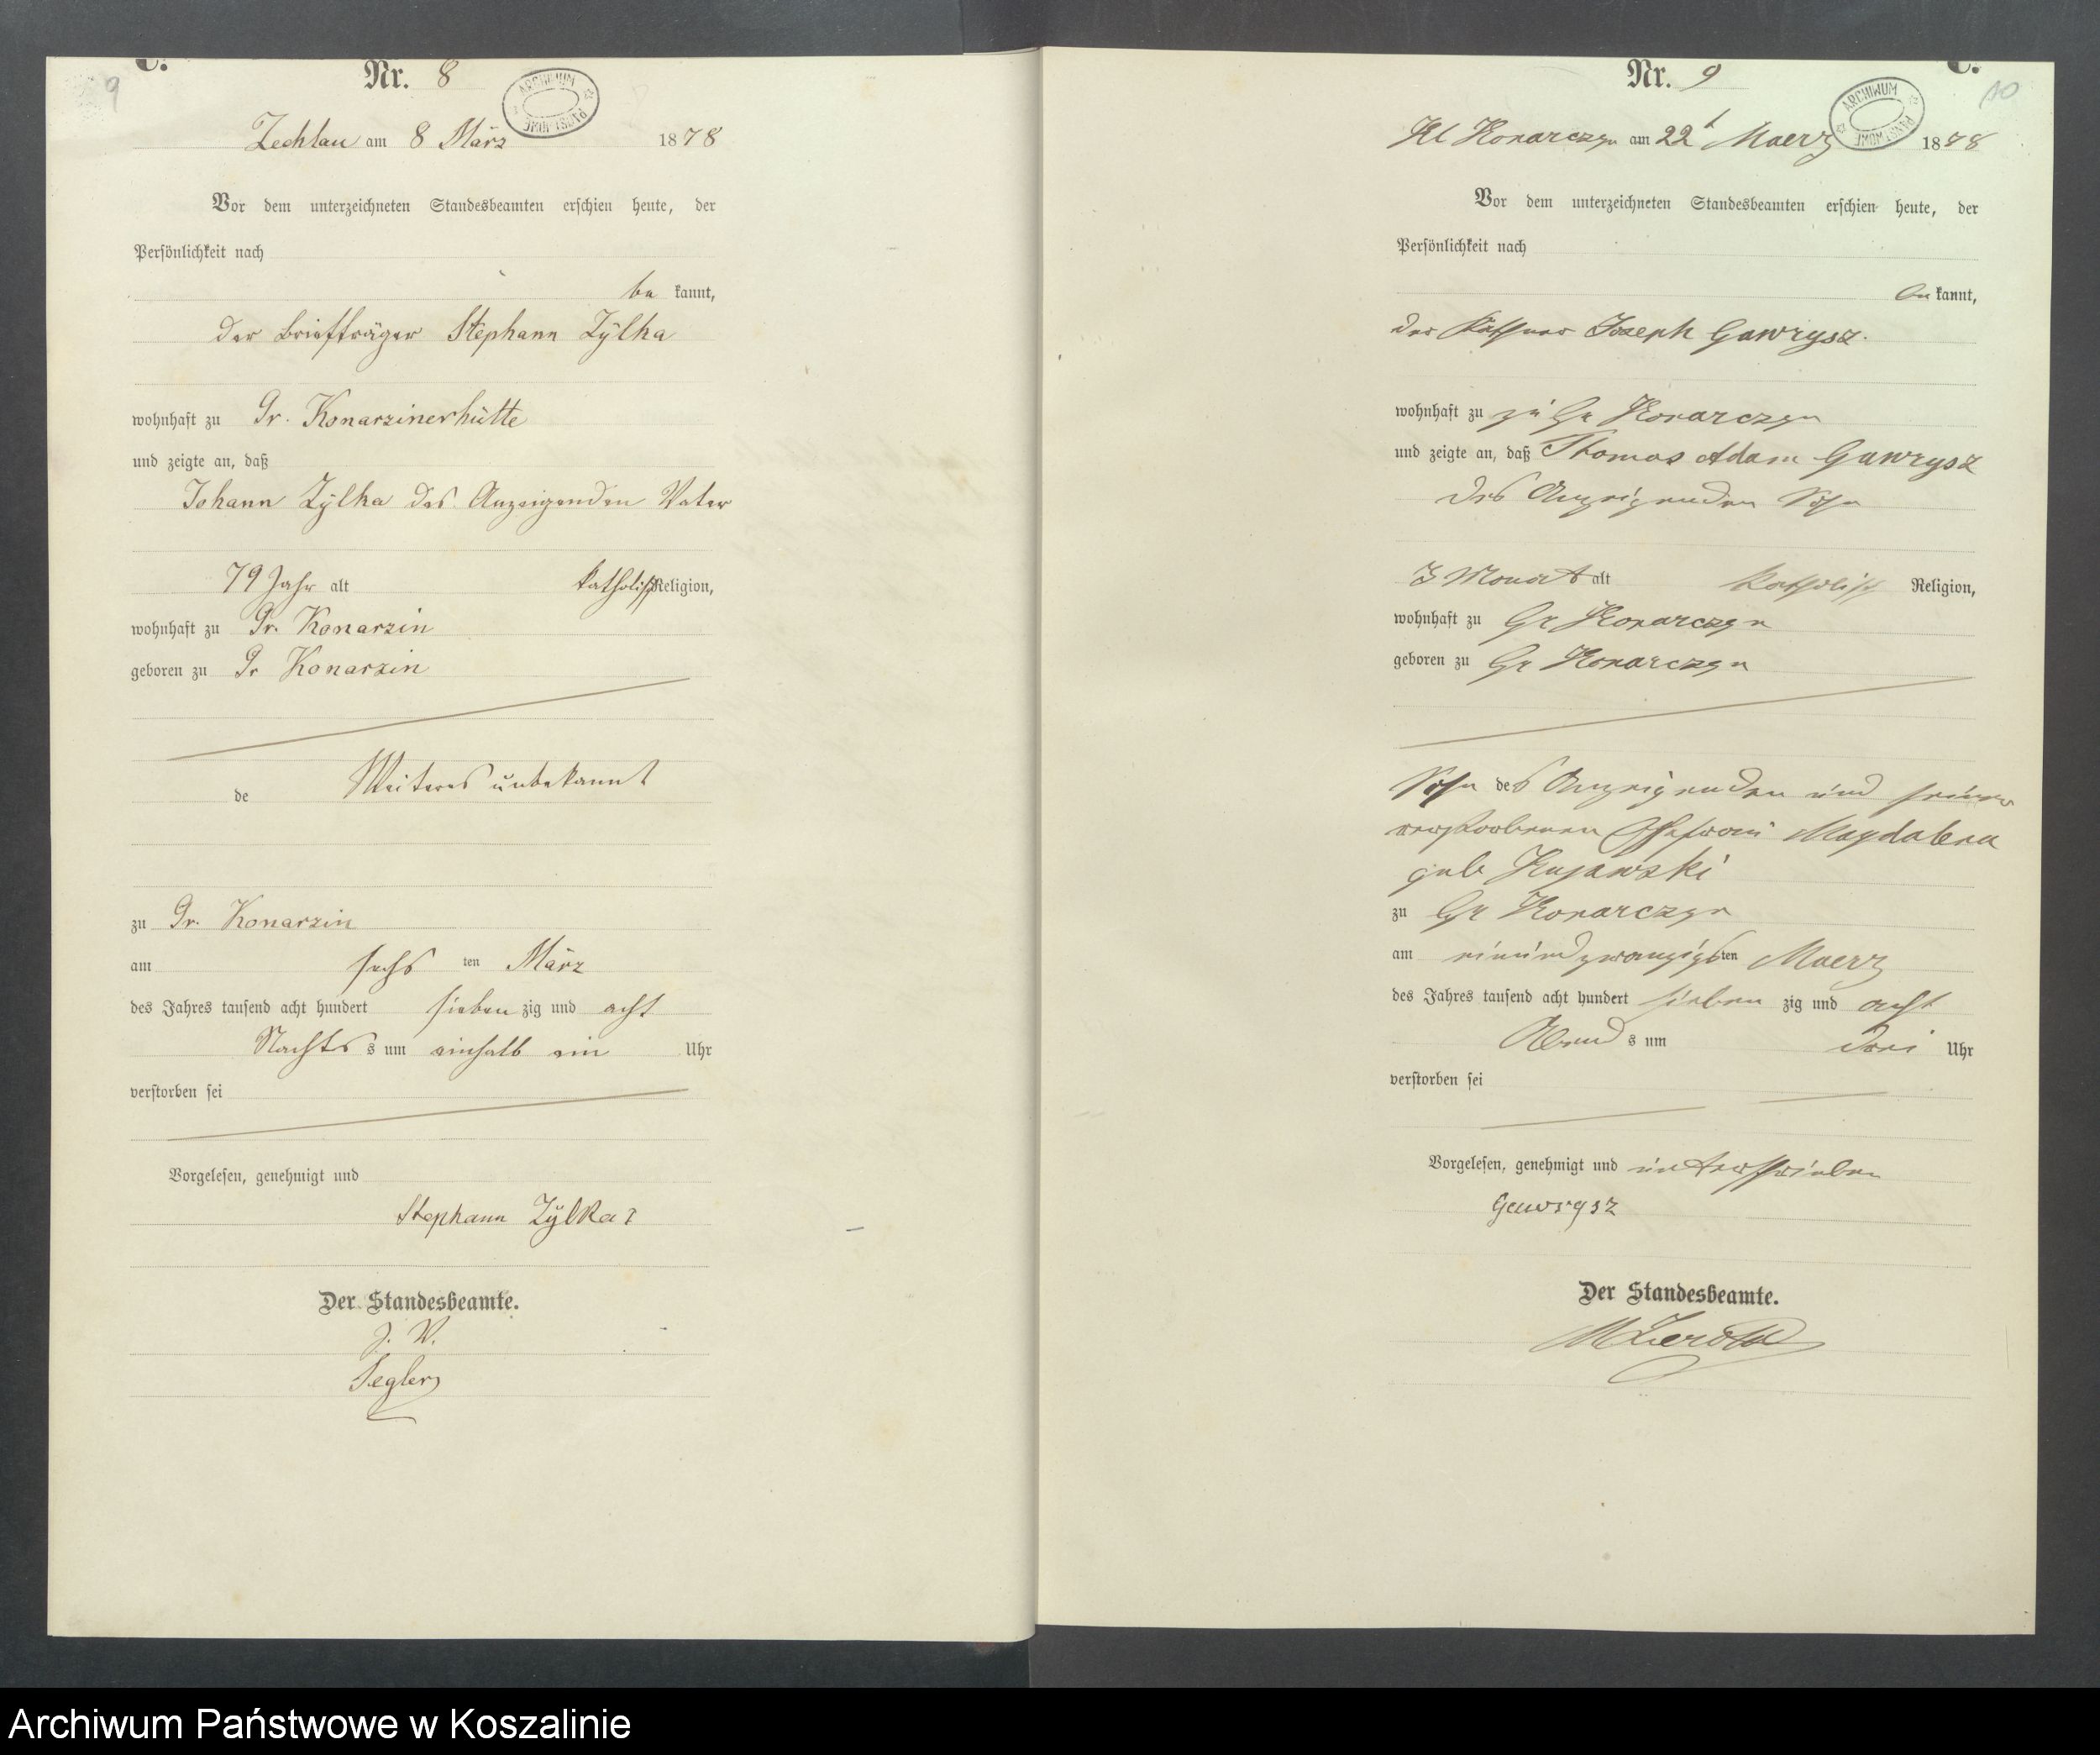 9
C.
Nr. 8
ARCHIWUM PAŃSTWOWE
Zechlau am 8 März 1878
Vor dem unterzeichneten Standesbeamten erschien heute, der
Persönlichkeit nach
be kannt,
der Briefträger Stephann Zÿlka
wohnhaft zu Gr. Konarzinerhütte
und zeigte an, daß
Johann Zÿlka des Anzeigenden Vater
79 Jahr alt katholisch Religion,
wohnhaft zu Gr. Konarzin
geboren zu Gr Konarzin
de Weiteres unbekannt
zu Gr. Konarzin
am sechs ten März
des Jahres tausend acht hundert sieben zig und acht
Nachts s um einhalb ein Uhr
verstorben sei
Vorgelesen, genehmigt und
Stephann Zÿlka
Der Standesbeamte.
J. V.
Segler
C.
Nr. 9
10
ARCHIWUM PAŃSTWOWE
Kl Konarczyn am 22t Maerz 1878
Vor dem unterzeichneten Standesbeamten erschien heute, der
Persönlichkeit nach
be kannt,
der Käthner Joseph Gawrysz.
wohnhaft zu zu Gr Konarczyn
und zeigte an, daß Thomas Adam Gawrysz
des Anzeigenden Sohn
3 Monat alt katholisch Religion,
wohnhaft zu Gr Konarczyn
geboren zu Gr Konarczyn
Sohn des Anzeigenden und seiner
verstorbenen Ehefrau Magdalena
geb Kujawski
zu Gr Konarczyn
am einundzwanzigsten Maerz
des Jahres tausend acht hundert sieben zig und acht
Abend s um drei Uhr
verstorben sei
Vorgelesen, genehmigt und unterschrieben
Gawrysz
Der Standesbeamte.
Archiwum Państwowe w Koszalinie